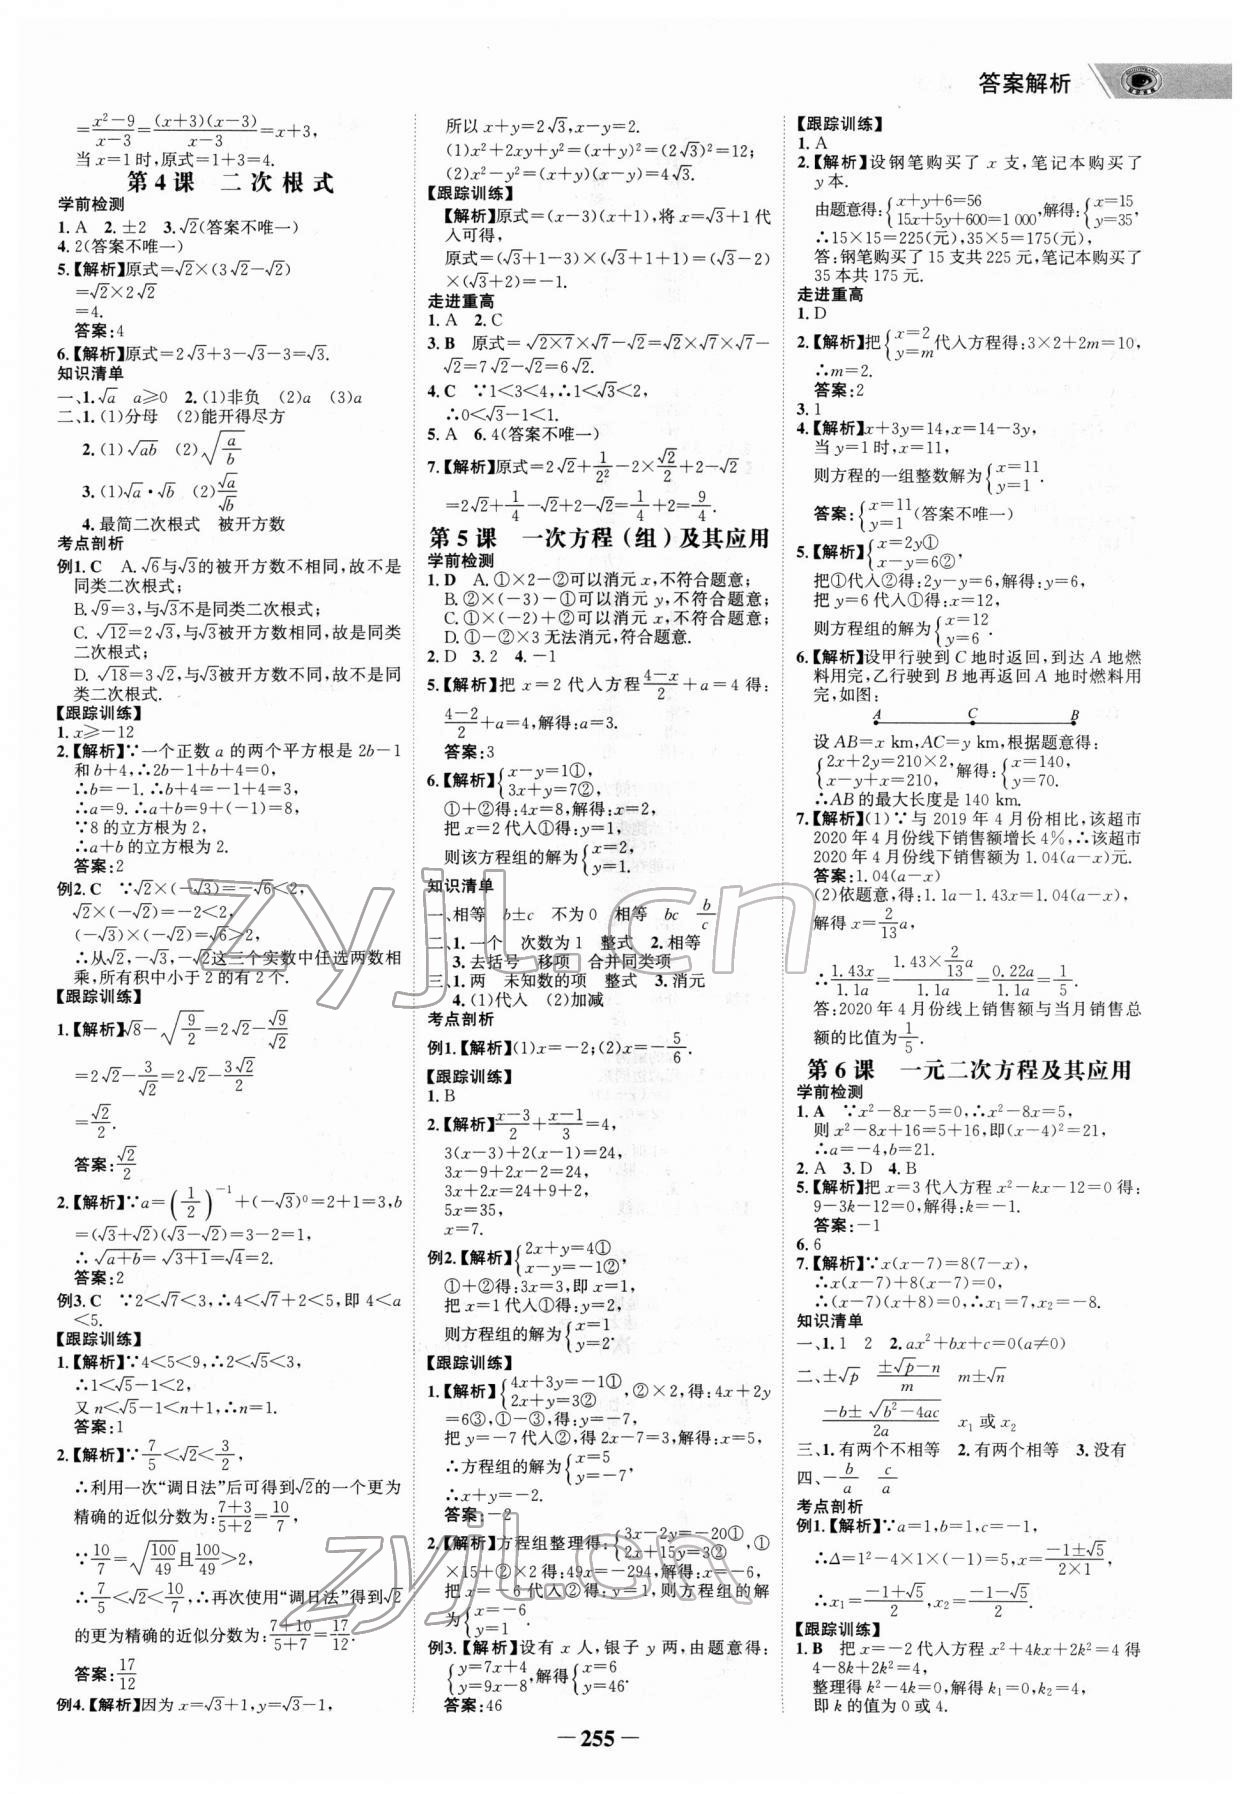 答案解析
=\frac{x²-9}{x-3}=\frac{(x+3)(x-3)}{x-3}=x+3,
当 x=1 时,原式=1+3=4.
第 4 课 二 次 根 式
学前检测
1. A 2. ±2 3. √2(答案不唯一)
4. 2(答案不唯一)
5.【解析】原式=√2×(3√2-√2)
=√2×2√2
=4.
答案:4
6.【解析】原式=2√3+3-√3-3=√3.
知识清单
一、1. √a a≥0 2. (1)非负 (2)a (3)a
二、1. (1)分母 (2)能开得尽方
2. (1)√ab (2)√(a/b)
3. (1)√a·√b (2)√a/√b
4. 最简二次根式 被开方数
考点剖析
例1. C A. √6与√3的被开方数不相同,故不是
同类二次根式;
B. √9=3,与√3不是同类二次根式;
C. √12=2√3,与√3被开方数相同,故是同类
二次根式;
D. √18=3√2,与√3被开方数不同,故不是同
类二次根式.
【跟踪训练】
1. x≥-12
2.【解析】∵一个正数 a 的两个平方根是 2b-1
和 b+4,∴2b-1+b+4=0,
∴b=-1. ∴b+4=-1+4=3,
∴a=9. ∴a+b=9+(-1)=8,
∵8 的立方根为 2,
∴a+b 的立方根为 2.
答案:2
例2. C ∵√2×(-√3)=-√6<2,
√2×(-√2)=-2<2,
(-√3)×(-√2)=√6>2,
∴从√2,-√3,-√2这三个实数中任选两数相
乘,所有积中小于 2 的有 2 个.
【跟踪训练】
1.【解析】√8-√(9/2)=2√2-√9/√2
=2√2-3/√2=2√2-3√2/2
=√2/2.
答案:√2/2
2.【解析】∵a=(1/2)⁻¹+(-√3)⁰=2+1=3,b
=(√3+√2)(√3-√2)=3-2=1,
∴√(a+b)=√(3+1)=√4=2.
答案:2
例3. C ∵2<√7<3,∴4<√7+2<5,即 4<a
<5.
【跟踪训练】
1.【解析】∵4<5<9,∴2<√5<3,
∴1<√5-1<2,
又 n<√5-1<n+1,∴n=1.
答案:1
2.【解析】∵7/5<√2<3/2,
∴利用一次“调日法”后可得到√2的一个更为
精确的近似分数为:\frac{7+3}{5+2}=\frac{10}{7},
∵10/7=√(100/49)且100/49>2,
∴7/5<√2<10/7,∴再次使用“调日法”得到√2
的更为精确的近似分数为:\frac{7+10}{5+7}=\frac{17}{12}.
答案:17/12
例4.【解析】因为 x=√3+1,y=√3-1,
所以 x+y=2√3,x-y=2.
(1)x²+2xy+y²=(x+y)²=(2√3)²=12;
(2)x²-y²=(x+y)(x-y)=4√3.
【跟踪训练】
【解析】原式=(x-3)(x+1),将 x=√3+1代
入可得,
原式=(√3+1-3)×(√3+1+1)=(√3-2)
×(√3+2)=-1.
走进重高
1. A 2. C
3. B 原式=√(2×7)×√7-√2=√2×√7×√7-
√2=7√2-√2=6√2.
4. C ∵1<3<4,∴1<√3<2,
∴0<√3-1<1.
5. A 6. 4(答案不唯一)
7.【解析】原式=2√2+1/2²-2×√2/2+2-√2
=2√2+1/4-√2+2-√2=1/4+2=9/4.
第 5 课 一次方程(组)及其应用
学前检测
1. D A. ①×2-②可以消元 x,不符合题意;
B. ②×(-3)-①可以消元 y,不符合题意;
C. ①×(-2)+②可以消元 x,不符合题意;
D. ①-②×3 无法消元,符合题意.
2. D 3. 2 4. -1
5.【解析】把 x=2 代入方程\frac{4-x}{2}+a=4 得:
\frac{4-2}{2}+a=4,解得:a=3.
答案:3
6.【解析】{x-y=1①,
3x+y=7②,
①+②得:4x=8,解得:x=2,
把 x=2 代入①得:y=1,
则该方程组的解为{x=2,
y=1.
知识清单
一、相等 b±c 不为 0 相等 bc b/c
二、1. 一个 次数为 1 整式 2. 相等
3. 去括号 移项 合并同类项
三、1. 两 未知数的项 整式 3. 消元
4. (1)代入 (2)加减
考点剖析
例1.【解析】(1)x=-2;(2)x=-5/6.
【跟踪训练】
1. B
2.【解析】\frac{x-3}{2}+\frac{x-1}{3}=4,
3(x-3)+2(x-1)=24,
3x-9+2x-2=24,
3x+2x=24+9+2,
5x=35,
x=7.
例2.【解析】{2x+y=4①
x-y=-1②,
①+②得:3x=3,即 x=1,
把 x=1 代入①得:y=2,
则方程组的解为{x=1
y=2.
【跟踪训练】
1.【解析】{4x+3y=-1①
2x+y=3②,②×2,得:4x+2y
=6③,①-③,得:y=-7,
把 y=-7 代入②,得 2x-7=3,解得:x=5,
∴方程组的解为{x=5
y=-7,
∴x+y=-2.
答案:-2
2.【解析】方程组整理得:{3x-2y=-20①
2x+15y=3②,①
×15+②×2 得:49x=-294,解得:x=-6,
把 x=-6 代入②得:y=1,则方程组的解
为{x=-6
y=1.
例3.【解析】设有 x 人,银子 y 两,由题意得:
{y=7x+4
y=9x-8,解得{x=6
y=46.
答案:46
【跟踪训练】
1. A
2.【解析】设钢笔购买了 x 支,笔记本购买了
y 本.
由题意得:{x+y+6=56
15x+5y+600=1 000,解得:{x=15
y=35,
∴15×15=225(元),35×5=175(元),
答:钢笔购买了 15 支共 225 元,笔记本购买了
35 本共 175 元.
走进重高
1. D
2.【解析】把{x=2
y=m代入方程得:3×2+2m=10,
∴m=2.
答案:2
3. 1
4.【解析】x+3y=14,x=14-3y,
当 y=1 时,x=11,
则方程的一组整数解为{x=11
y=1.
答案:{x=11
y=1(答案不唯一)
5.【解析】{x=2y①
x-y=6②,
把①代入②得:2y-y=6,解得:y=6,
把 y=6 代入①得:x=12,
则方程组的解为{x=12
y=6.
6.【解析】设甲行驶到 C 地时返回,到达 A 地燃
料用完,乙行驶到 B 地再返回 A 地时燃料用
完,如图:
A C B
设 AB=x km,AC=y km,根据题意得:
{2x+2y=210×2,
x-y+x=210,解得:{x=140,
y=70.
∴AB 的最大长度是 140 km.
7.【解析】(1)∵与 2019 年 4 月份相比,该超市
2020 年 4 月份线下销售额增长 4%,∴该超市
2020 年 4 月份线下销售额为 1.04(a-x)元.
答案:1.04(a-x)
(2)依题意,得:1.1a-1.43x=1.04(a-x),
解得 x=\frac{2}{13}a,
∴\frac{1.43x}{1.1a}=\frac{1.43×\frac{2}{13}a}{1.1a}=\frac{0.22a}{1.1a}=\frac{1}{5}.
答:2020 年 4 月份线上销售额与当月销售总
额的比值为1/5.
第 6 课 一元二次方程及其应用
学前检测
1. A ∵x²-8x-5=0,∴x²-8x=5,
则 x²-8x+16=5+16,即(x-4)²=21,
∴a=-4,b=21.
2. A 3. D 4. B
5.【解析】把 x=3 代入方程 x²-kx-12=0 得:
9-3k-12=0,解得:k=-1.
答案:-1
6. 6
7.【解析】∵x(x-7)=8(7-x),
∴x(x-7)+8(x-7)=0,
∴(x-7)(x+8)=0,∴x₁=7,x₂=-8.
知识清单
一、1. 1 2 2. ax²+bx+c=0(a≠0)
二、±√p \frac{±√p-n}{m} m±√n
\frac{-b±√(b²-4ac)}{2a} x₁ 或 x₂
三、1. 有两个不相等 2. 有两个相等 3. 没有
四、-b/a c/a
考点剖析
例1.【解析】∵a=1,b=1,c=-1,
∴Δ=1²-4×1×(-1)=5,x=\frac{-1±√5}{2×1},
∴x₁=\frac{-1+√5}{2},x₂=\frac{-1-√5}{2}.
【跟踪训练】
1. B 把 x=-2 代入方程 x²+4kx+2k²=4 得
4-8k+2k²=4,
整理得 k²-4k=0,解得 k₁=0,k₂=4,
即 k 的值为 0 或 4.
— 255 —
zyjl.cn
zyjl.cn